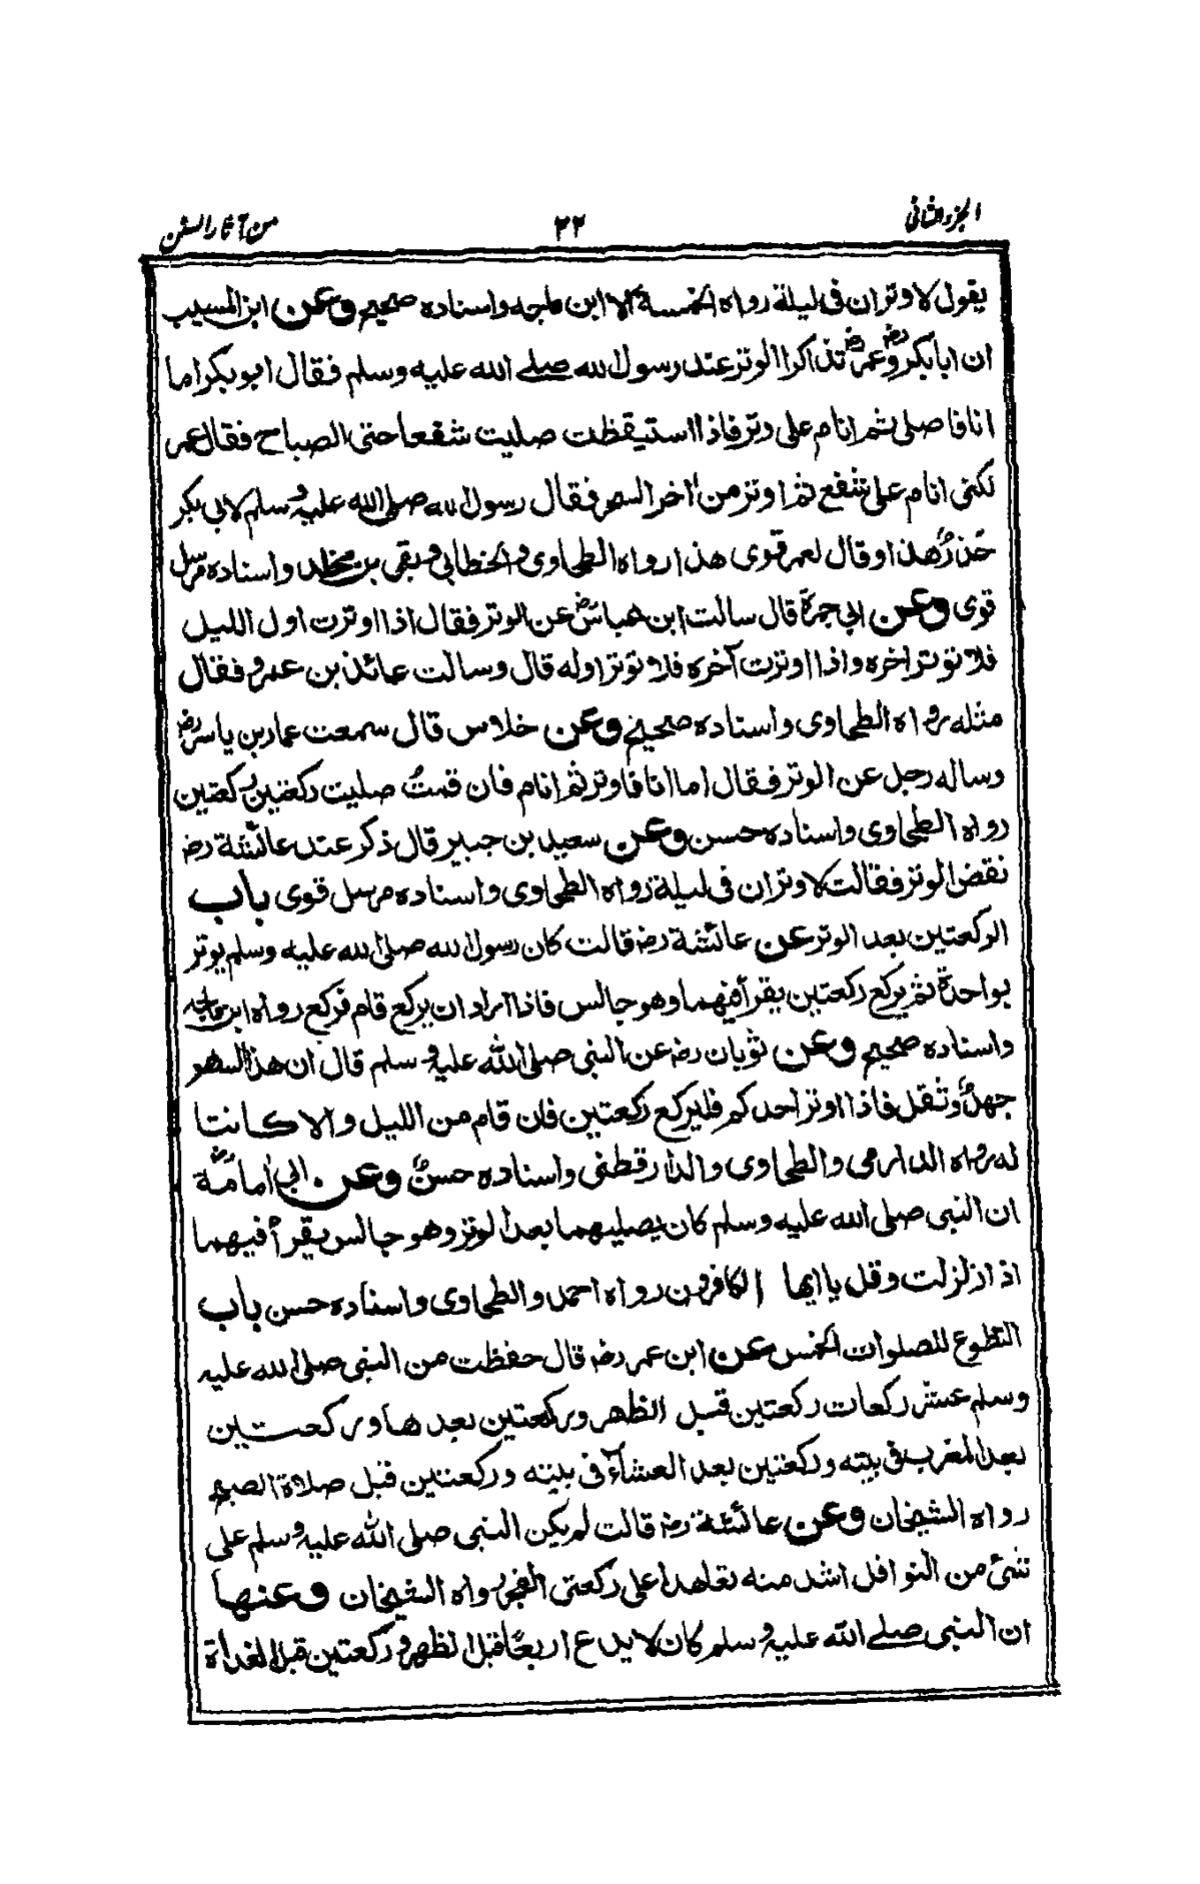 الجزء الثانى
٢٢
من آثار السنن
يقول لا وتران فى ليلة رواه الخمسة الا ابن ماجه واسناده صحيح وعن ابن المسيب
ان ابابكرؓ وعمرؓ تذاكرا الوتر عند رسول الله صلے الله عليه وسلم فقال ابو بكر اما
انا فاصلى ثم انام على وتر فاذا استيقظت صليت شفعا حتى الصباح فقال عمر
لكنى انام على شفع ثم اوتر من اخر السحر فقال رسول الله صلى الله عليه وسلم لابى بكر
حذر هذا وقال لعمر قوى هذا رواه الطحاوى والخطابى وبقى بن مخلد واسناده مرسل
قوى وعن ابى جمرة قال سالت ابن عباسؓ عن الوتر فقال اذا اوترت اول الليل
فلا توتر اخره واذا اوترت آخره فلا توتر اوله قال وسالت عائذ بن عمرو فقال
مثله رواه الطحاوى واسناده صحيح وعن خلاس قال سمعت عمار بن ياسرؓ
وساله رجل عن الوتر فقال اما انا فاوتر ثم انام فان قمتُ صليت ركعتين ركعتين
رواه الطحاوى واسناده حسن وعن سعيد بن جبير قال ذكر عند عائشة رضـ
نقض الوتر فقالت لا وتران فى ليلة رواه الطحاوى واسناده مرسل قوى باب
الركعتين بعد الوتر عن عائشة رضـ قالت كان رسول الله صلى الله عليه وسلم يوتر
بواحدة ثم يركع ركعتين يقرأ فيهما وهو جالس فاذا اراد ان يركع قام فركع رواه ابن ماجه
واسناده صحيح وعن ثوبان رضـ عن النبى صلى الله عليه وسلم قال ان هذا السهر
جهدٌ وثقل فاذا اوتر احدكم فليركع ركعتين فان قام من الليل والا كانتا
له رواه الدارمى والطحاوى والدارقطنى واسناده حسنٌ وعن ابى امامةؓ
ان النبى صلى الله عليه وسلم كان يصليهما بعد الوتر وهو جالس يقرأ فيهما
اذا زلزلت وقل يا ايها الكافرون رواه احمد والطحاوى واسناده حسن باب
التطوع للصلوات الخمس عن ابن عمر رضـ قال حفظت من النبى صلى الله عليه
وسلم عشر ركعات ركعتين قبل الظهر وركعتين بعدها وركعتين
بعد المغرب فى بيته وركعتين بعد العشاء فى بيته وركعتين قبل صلاة الصبح
رواه الشيخان وعن عائشة رضـ قالت لم يكن النبى صلى الله عليه وسلم على
شئ من النوافل اشد منه تعاهدا على ركعتى الفجر رواه الشيخان وعنها
ان النبى صلے الله عليه وسلم كان لا يدع اربعًا قبل الظهر وركعتين قبل الغداة